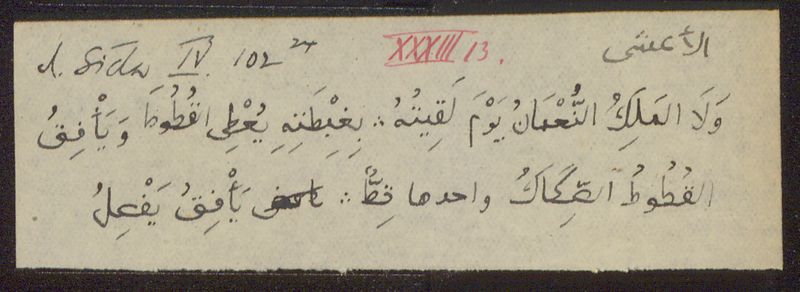 I. Sida IV. 102 24 XXXIII 13. الأعشى
وَلَا المَلِكُ النُّعْمَانُ يَوْمَ لَقِيتُهُ ∴ بِغِبْطَتِهِ يُعْطِى القُطُوطَ وَيَأْفِقُ
القُطُوطُ الصِّكَاكُ واحدها قِطٌّ ∴ يَأْفِقُ يَفْعِلُ